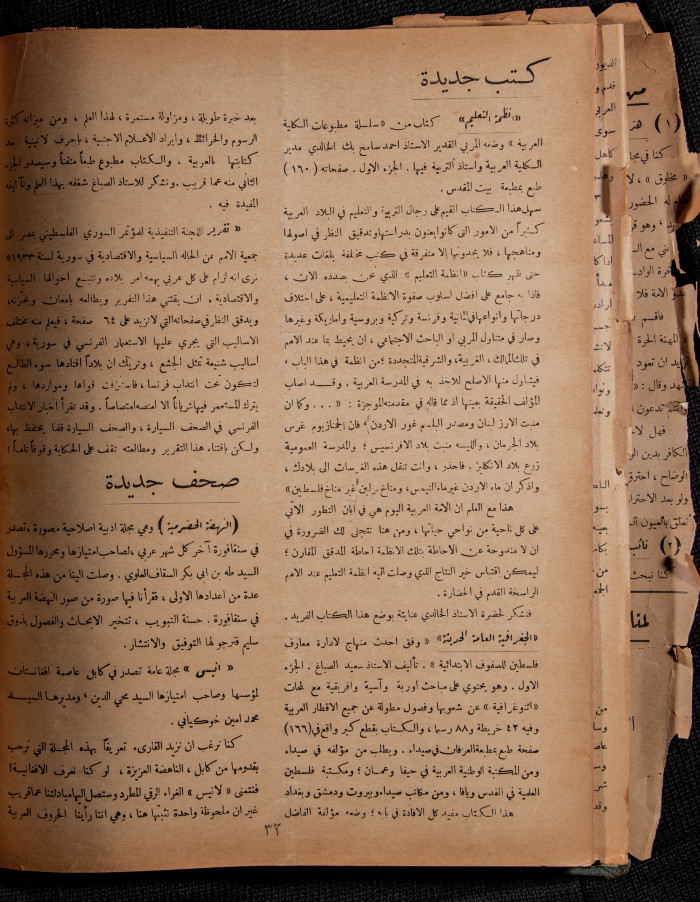 كتب جديدة
«انظمة التعليم» كتاب من «سلسلة مطبوعات الكلية
العربية» وضعه المربي القدير الاستاذ احمد سامح بك الخالدي مدير
الكلية العربية وأستاذ التربية فيها . الجزء الاول . صفحاته (١٦٠)
طبع بمطبعة بيت المقدس.
سهل هذا الكتاب القيم على رجال التربية والتعليم في البلاد العربية
كثيراً من الامور التي كانوا يعنون بدراستها وتدقيق النظر في اصولها
ومناهجها ، فلا يجدونها إلا متفرقة في كتب مختلفة بلغات عديدة
حتى ظهر كتاب « انظمة التعليم » الذي نحن بصدده الان ،
فاذا به جامع على افضل اسلوب صفوة الانظمة التعليمية ، على اختلاف
درجاتها وانواعها في المانية وفرنسة وتركية وبروسية واماريكة وغيرها
وصار في متناول المربي او الباحث الاجتماعي ، ان يحيط بما عند الامم
في تلك الممالك ، الغربية، والشرقية المتجددة ؛ من انظمة في هذا الباب ،
فيتناول منها الاصلح للاخذ به في المدرسة العربية . وقد اصاب
المؤلف الحقيقة بعينها اذ مما قاله في مقدمته الموجزة : « ... وكما ان
منبت الارز لبنان ومصدر البلسم غور الاردن ، فان الجمنازيوم غرس
بلاد الجرمان ، والليسه منبت بلاد الافرنسيس ؛ والمدرسة العمومية
زرع بلاد الانكليز . فاحذر ، وانت تنقل هذه الغرسات الى بلادك ،
واذكر ان ماء الاردن غير ماء التيمس، ومناخ برلين غير مناخ فلسطين»
هذا مع العلم ان الامة العربية اليوم هي في ابان التطور الآتي
على كل ناحية من نواحي حياتها ، ومن هنا تتجلى لك الضرورة في
ان لا مندوحة عن الاحاطة بتلك الانظمة احاطة المدقق المقارن ؛
ليمكن اقتباس خير النتاج الذي وصلت اليه انظمة التعليم عند الامم
الراسخة القدم في الحضارة .
فنشكر لحضرة الاستاذ الخالدي عنايته بوضع هذا الكتاب الفريد .
«الجغرافية العامة الحديثة» « وفق احدث منهاج لادارة معارف
فلسطين للصفوف الابتدائية » . تأليف الاستاذ سعيد الصباغ . الجزء
الاول . وهو يحتوي على مباحث اوربة وآسية وافريقية مع لمحات
«اثنوغرافية» عن شعوبها وفصول مطولة عن جميع الاقطار العربية
وفيه ٤٢ خريطة و٨٨ رسما ، والكتاب بقطع كبير واقع في (١٦٦)
صفحة طبع بمطبعة العرفان في صيداء . ويطلب من مؤلفه في صيداء
ومن المكتبة الوطنية العربية في حيفا وعمان ؛ ومكتبة فلسطين
العلمية في القدس ويافا ، ومن مكاتب صيداء وبيروت ودمشق وبغداد
هذا الكتاب مفيد كل الافادة في بابه ؛ وضعه مؤلفه الفاضل
بعد خبرة طويلة ، ومزاولة مستمرة ، لهذا العلم ، ومن ميزاته كثرة
الرسوم والخرائط ، وايراد الاعلام الاجنبية ، باحرف لاتينية بعد
كتابتها بالعربية . والكتاب مطبوع طبعاً متقناً وسيصدر الجزء
الثاني منه عما قريب . ونشكر للاستاذ الصباغ شغفه بهذا العلم وتآليفه
المفيدة فيه .
« تقرير اللجنة التنفيذية لمؤتمر السوري الفلسطيني بمصر الى
جمعية الامم عن الحاله السياسية والاقتصادية في سورية لسنة ١٩٣٣»
نرى انه لزام على كل عربي يهمه امر بلاده وتتبع احوالها السياسية
والاقتصادية ، ان يقتني هذا التقرير ويطالعه بامعان ويخبره،
ويدقق النظر في صفحاته التي لا تزيد على ٦٤ صفحة ، فيعلم منه مختلف
الاساليب التي يجري عليها الاستعمار الفرنسي في سورية ، وهي
اساليب شنيعة تمثل الجشع ، وتريك ان بلاداً اقتادها سوء الطالع
لتكون تحت انتداب فرنسا ، فاستنزفت قواها ومواردها ، ولم
يترك المستعمر فيها شرياناً الا امتصه امتصاصاً . وقد تقرأ اخبار الانتداب
الفرنسي في الصحف السيارة ، والصحف السيارة قلما يحتفظ بها،
ولكن باقتناء هذا التقرير ومطالعته تقف على الحكاية وقوفاً تاماً !
صحف جديدة
(النهضة الحضرمية) وهي مجلة ادبية اصلاحية مصورة ، تصدر
في سنقافورة آخر كل شهر عربي ، لصاحب امتيازها ومحررها المسؤول
السيد طه بن ابي بكر السقاف العلوي . وصلت الينا من هذه المجلة
عدة من اعدادها الاولى ، فقرأنا فيها صورة من صور النهضة العربية
في سنقافورة . حسنة التبويب ، تتخير الابحاث والفصول بذوق
سليم فنرجو لها التوفيق والانتشار .
« انيس » مجلة عامة تصدر في كابل عاصمة افغانستان
لمؤسسها وصاحب امتيازها السيد محي الدين ، ومديرها السيد
محمد امين خوكياني .
كنا نرغب ان نزيد القارىء تعريفاً بهذه المجلة التي نرحب
بقدومها من كابل ، الناهضة العزيزة ، لو كنا نعرف الافغانية !
فنتمنى « لانيس » الغراء الرقي المطرد وستصل اليها مبادلتنا عما قريب
غير ان ملحوظة واحدة نثبتها هنا ، وهي اننا رأينا الحروف العربية
٣٢